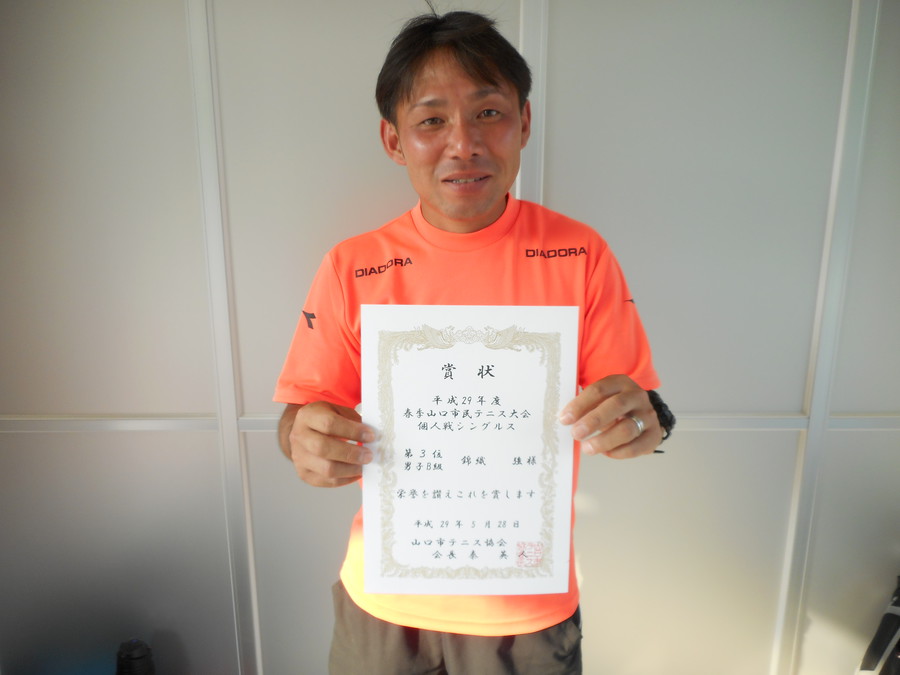 DIADORA
DIADORA
賞 状
平成29年度
春季山口市民テニス大会
個人戦シングルス
第3位
男子B級 錦織 様
栄誉を讃えこれを賞します
平成29年5月28日
山口市テニス協会
会長 秦 英